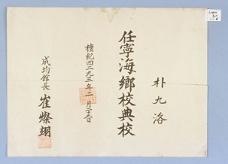 朴九洛
任寧海鄕校典校
檀紀四二九三年二月二十五日
成均館長 崔燦翊